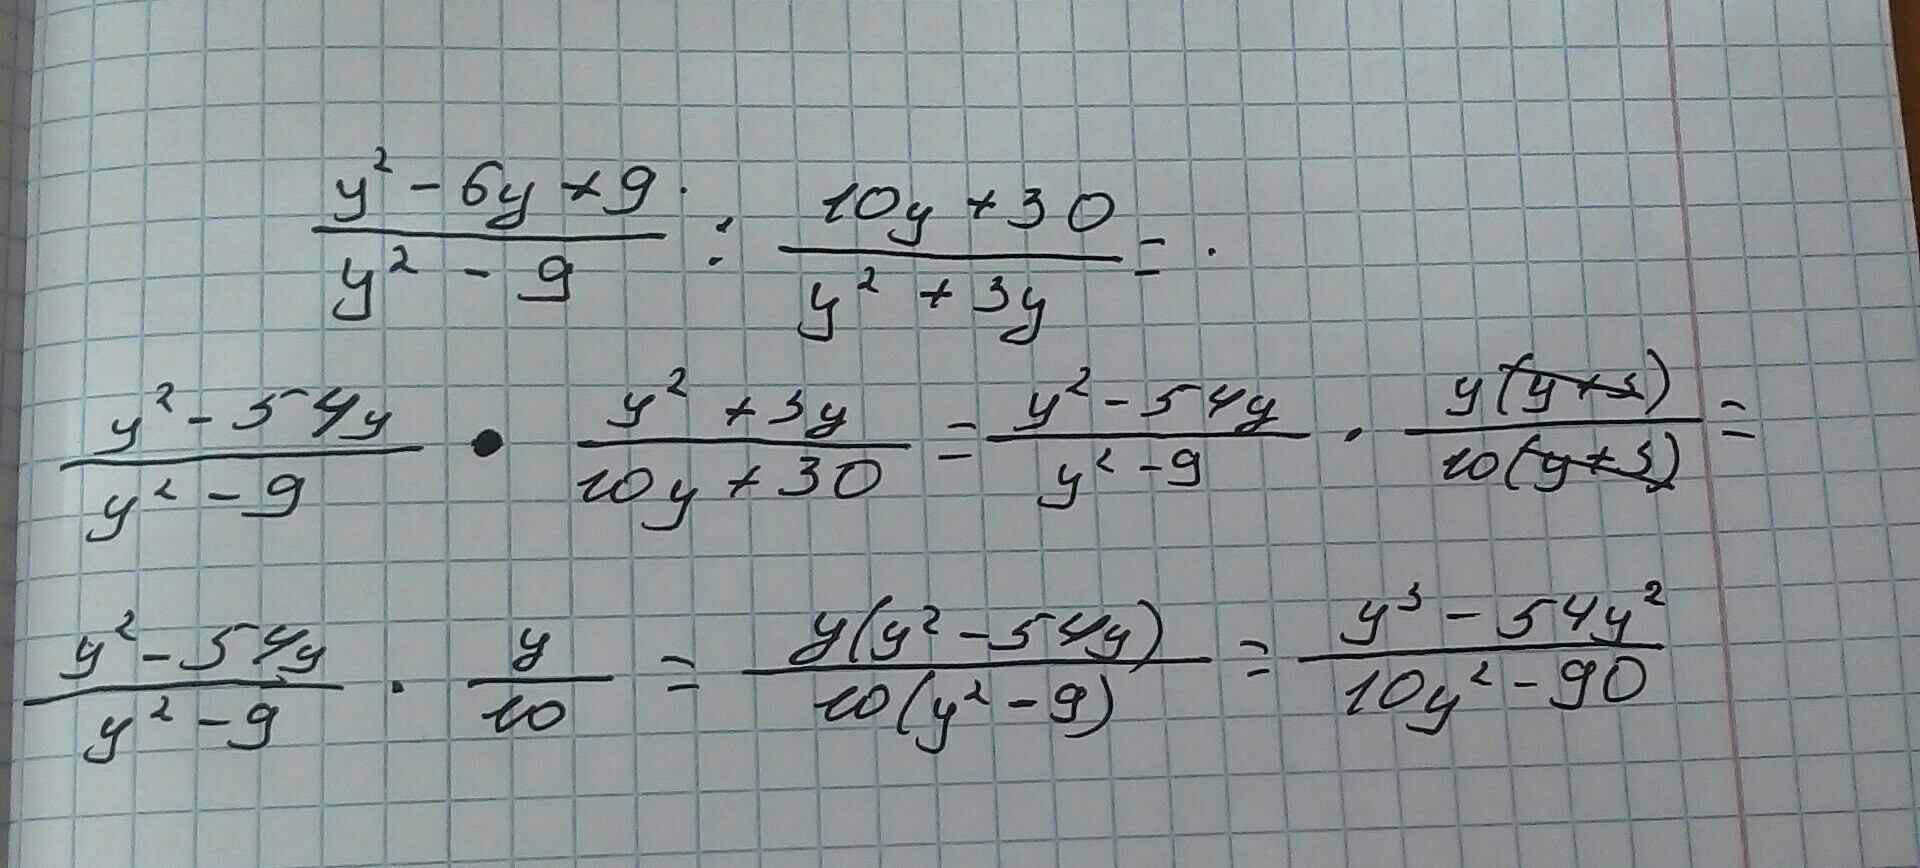 (y² - 6y + 9)/(y² - 9) : (10y + 30)/(y² + 3y) =
(y² - 54y)/(y² - 9) • (y² + 3y)/(10y + 30) = (y² - 54y)/(y² - 9) · y(y+3)/10(y+3) =
(y² - 54y)/(y² - 9) · y/10 = y(y² - 54y)/10(y² - 9) = (y³ - 54y²)/(10y² - 90)